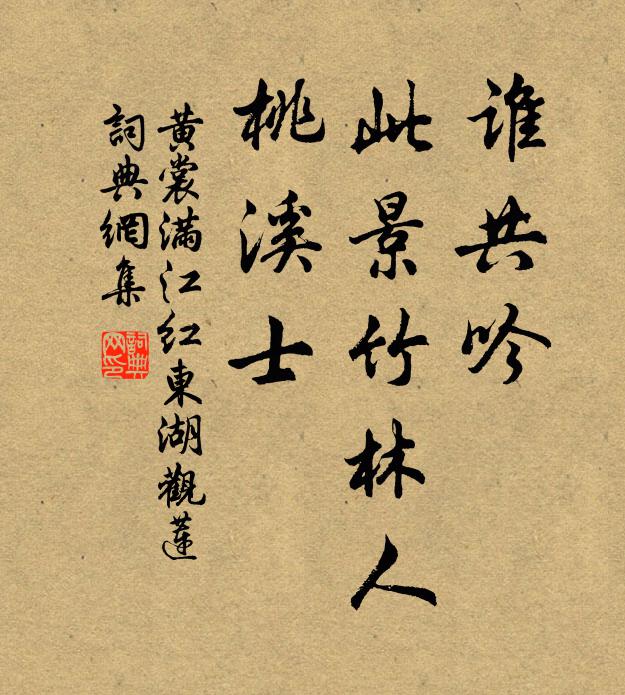 誰共吟
此景竹林人
桃溪士
黃裳滿江紅東湖觀蓮
詞典網集
詞典网印